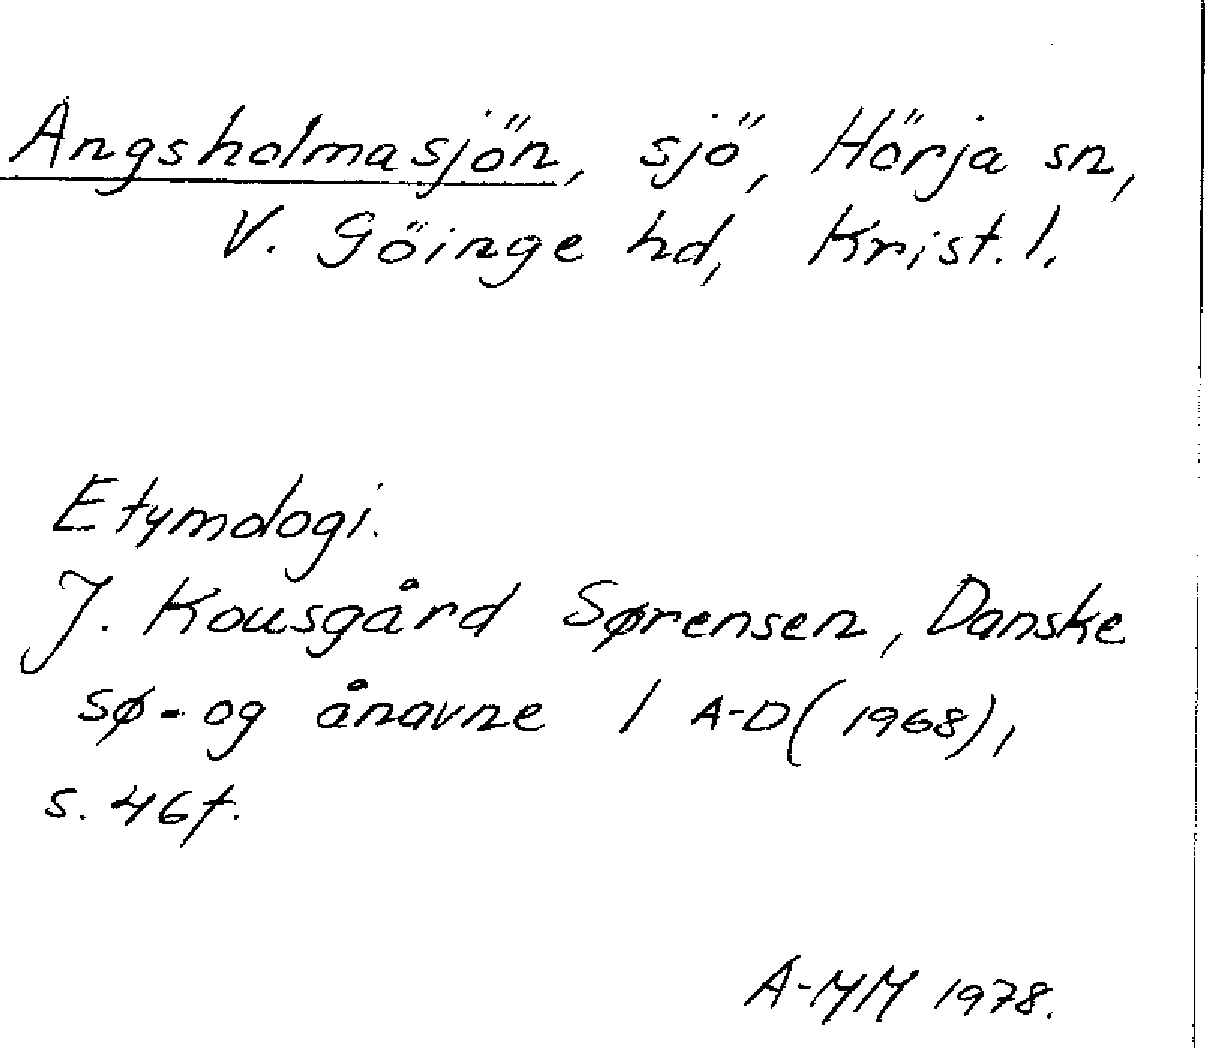 Angsholmasjön, sjö, Hörja sn,
V. Göinge hd, Krist. l.
Etymologi.
J. Kousgård Sørensen, Danske
sø- og ånavne 1 A-D (1968),
s. 46f.
A-MM 1978.